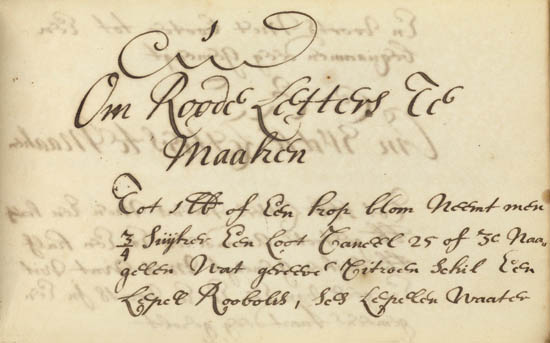 1
Om Roode Letters Te
Maaken
Tot 1 ℔ of Een kop blom Neemt men
3/4 Suijker Een Loot Caneel 25 of 30 Naa-
gelen Wat gereeve Citroen Schil Een
Lepel Roobolis, Ses Lepelen Waater